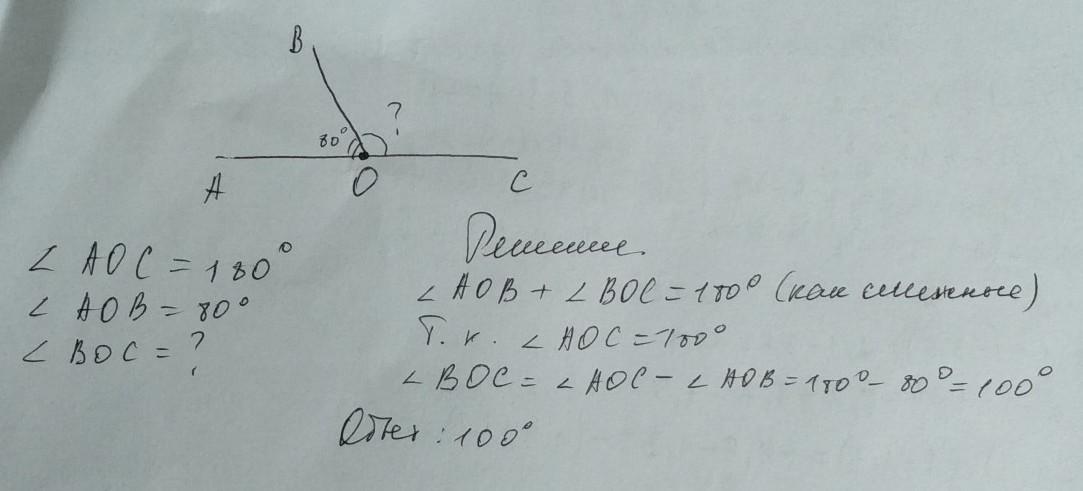 B
80° ?
A O C
∠ AOC = 180°
∠ AOB = 80°
∠ BOC = ?
Решение.
∠ AOB + ∠ BOC = 180° (как смежные)
Т. к. ∠ AOC = 180°
∠ BOC = ∠ AOC - ∠ AOB = 180° - 80° = 100°
Ответ: 100°